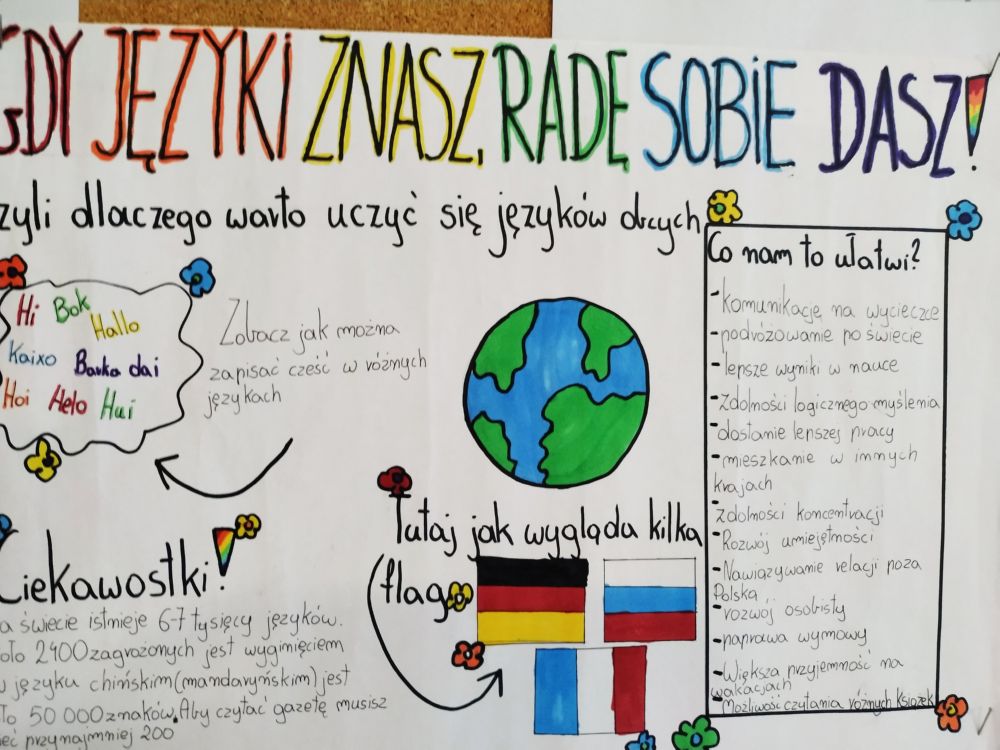 GDY JĘZYKI ZNASZ, RADĘ SOBIE DASZ!
zyli dlaczego warto uczyć się języków obcych
Hi Bok
Hallo
Kaixo Barka dai
Hoi Helo Hui
Zobacz jak można
zapisać cześć w różnych
językach
Co nam to ułatwi?
-komunikację na wycieczce
-podróżowanie po świecie
-lepsze wyniki w nauce
-zdolności logicznego myślenia
-dostanie lepszej pracy
-mieszkanie w innych
krajach
-zdolności koncentracji
-Rozwój umiejętności
-Nawiązywanie relacji poza
Polską
-rozwój osobisty
-naprawa wymowy
-Większa przyjemność na
wakacjach
-Możliwość czytania różnych książek
Tutaj jak wygląda kilka
flag
Ciekawostki!
a świecie istnieje 6-7 tysięcy języków.
oło 2400 zagrożonych jest wyginięciem
w języku chińskim (mandaryńskim) jest
To 50 000 znaków. Aby czytać gazetę musisz
ieć przynajmniej 200